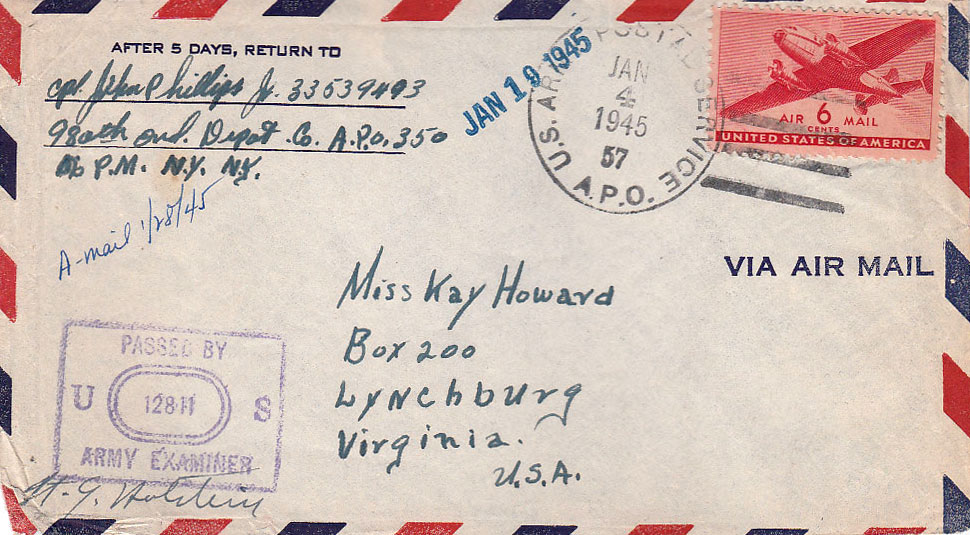 AFTER 5 DAYS, RETURN TO
Cpl. John Phillips Jr. 33539493
980th ord. Depot Co. A.P.O. 350
% P.M. N.Y. N.Y.
A-mail 1/28/45
JAN 19 1945
U.S. ARMY POSTAL SERVICE
JAN
4
1945
57
A.P.O.
AIR 6 MAIL
CENTS
UNITED STATES OF AMERICA
VIA AIR MAIL
Miss Kay Howard
Box 200
Lynchburg
Virginia.
U.S.A.
PASSED BY
U 12811 S
ARMY EXAMINER